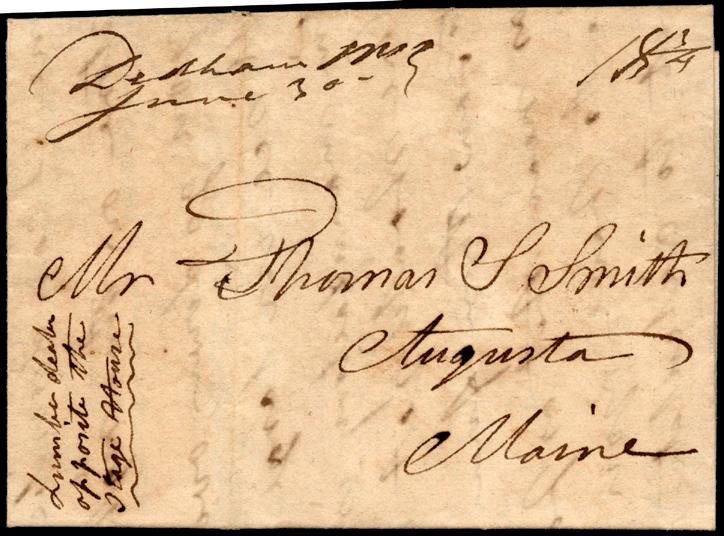 Dedham Ms
June 30
18 3/4
Mr Thomas S Smith
Augusta
Maine
Lumber dealer
opposite the
Stage House